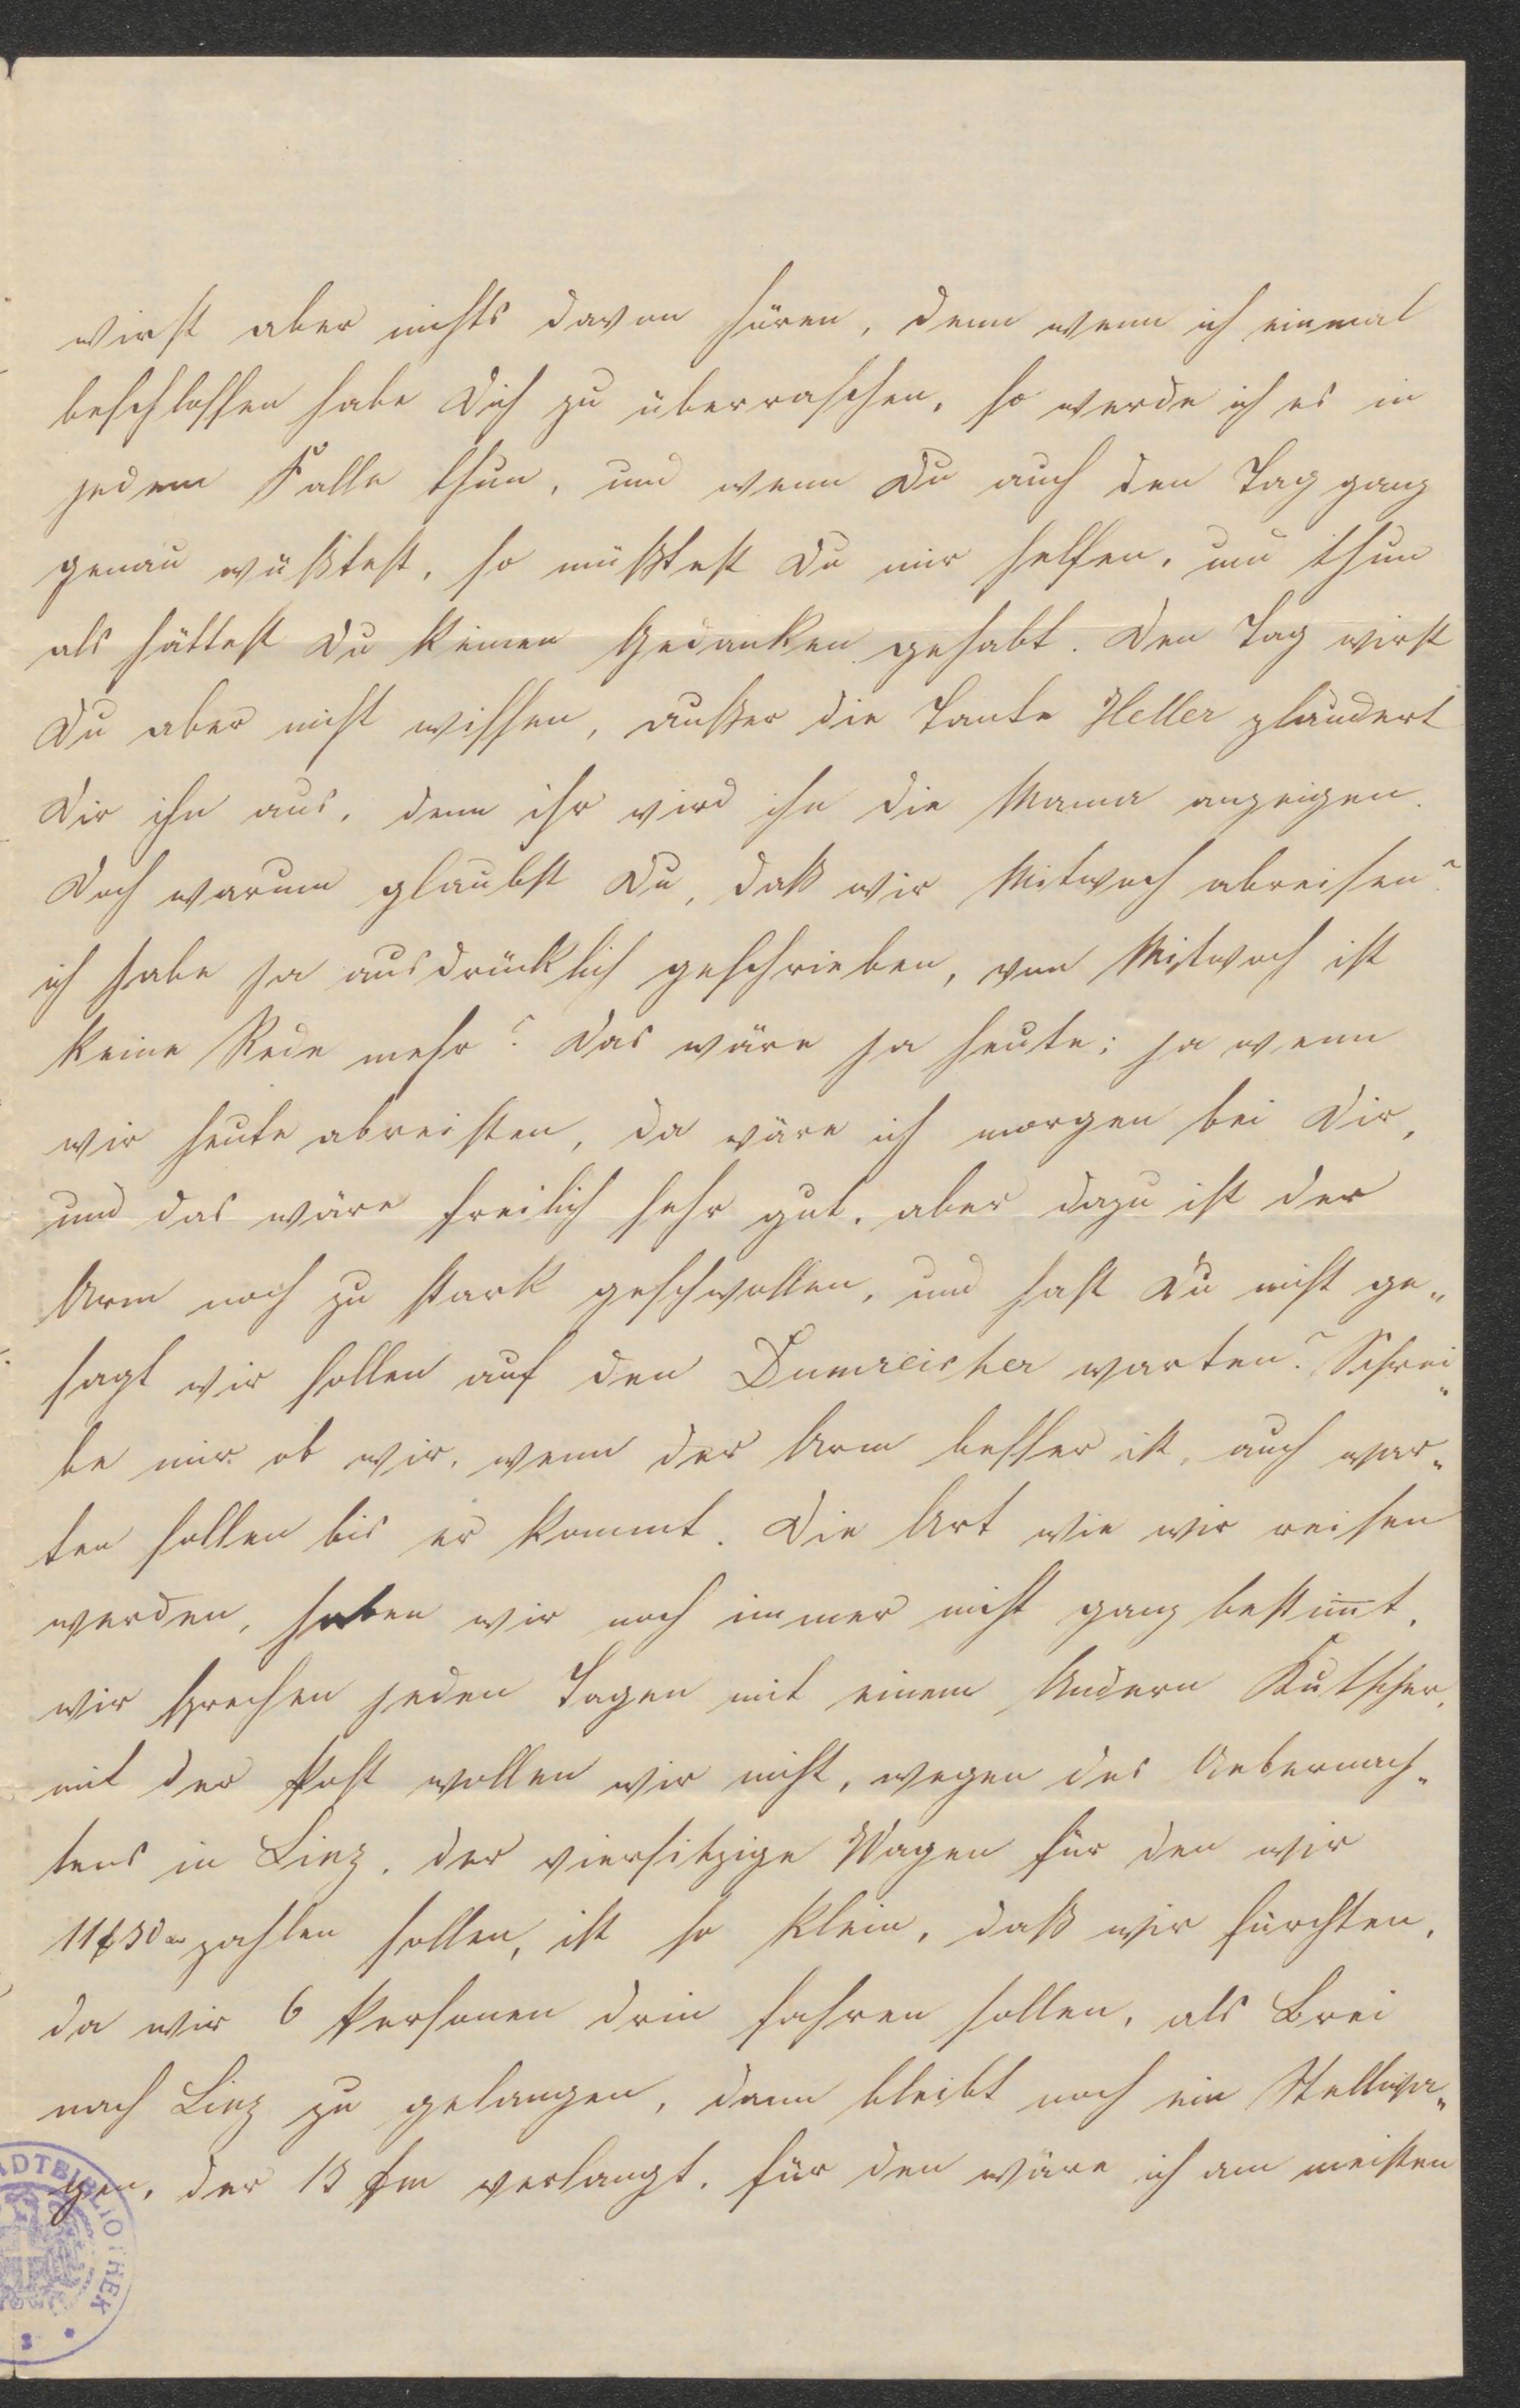 wirst aber nichts davon hören, denn wenn ich einmal
beschlossen habe Dich zu überraschen, so werde ich es in
jedem Falle thun, und wenn Du auch den Tag ganz
genau wüßtest, so müßtest Du mir helfen, und thun
als hättest Du keinen Gedanken gehabt. Den Tag wirst
Du aber nicht wissen, außer die Tante Heller plaudert
Dir ihn aus, denn ihr wird ihn die Mama anzeigen.
Doch warum glaubst Du, daß wir Mitwoch abreisen?
ich habe ja ausdrücklich geschrieben, von Mitwoch ist
keine Rede mehr? Das wäre ja heute; ja wenn
wir heute abreisten, da wäre ich morgen bei Dir,
und das wäre freilich sehr gut, aber dazu ist der
Arm noch zu stark geschwollen, und hast Du nicht ge„
sagt wir sollen auf den Dumreicher warten? Schrei„
be mir ob wir, wenn der Arm besser ist, auch war„
ten sollen bis er kommt. Die Art wie wir reisen
werden, haben wir noch immer nicht ganz bestim̅t,
wir sprechen jeden Tagen mit einem Andern Kutscher,
mit der Post wollen wir nicht, wegen des Uebernach„
tens in Linz, der viersitzige Wagen für den wir
11f30 zahlen sollen, ist so klein, daß wir fürchten,
da wir 6 Personen drin fahren sollen, als Brei
nach Linz zu gelangen, dann bleibt noch ein Stellwa„
gen, der 13 verlangt, für den wäre ich am meisten
ADTBIBLIOTHEK